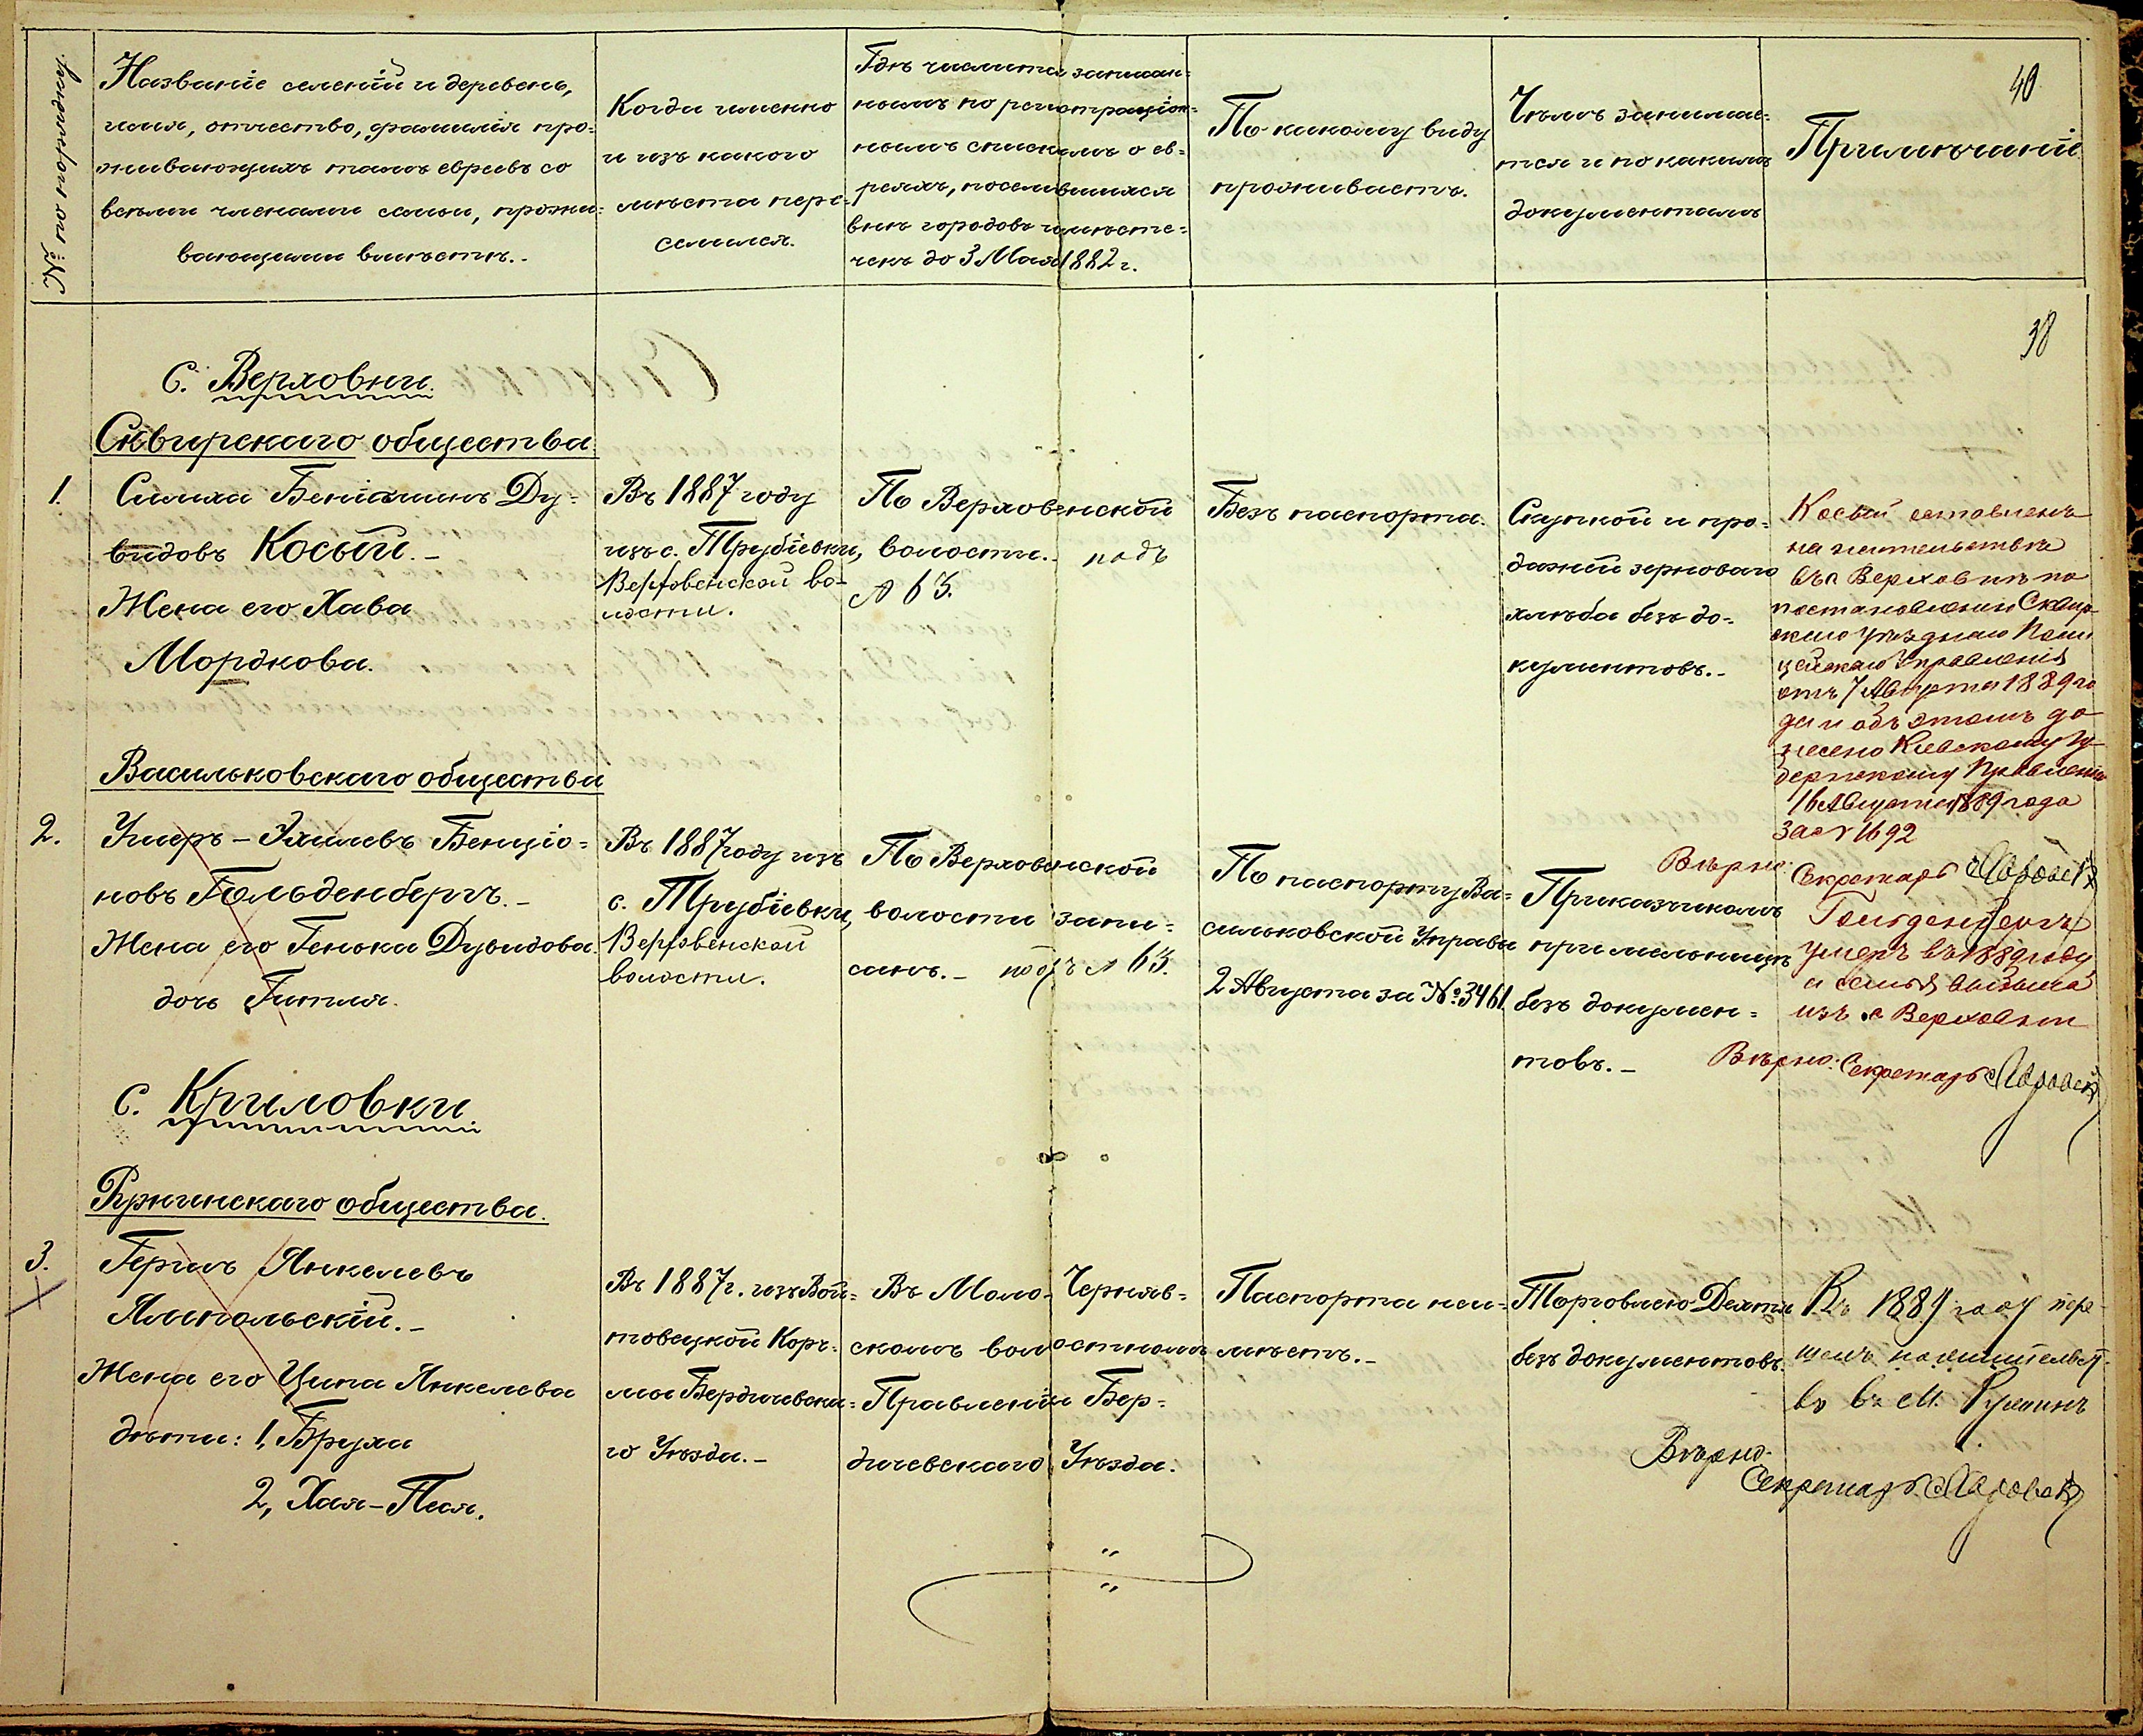 № по порядку
Названіе селеній и деревень,
имя, отчество, фамилія про=
живающихъ тамъ евреевъ со
всѣми членами семьи, прожи=
вающими вмѣстѣ.-
Когда именно
и изъ какого
мѣста пере=
селился.
Гдѣ числится записан=
нымъ по регистраціон=
нымъ спискамъ о ев=
реяхъ, поселившихся
внѣ городовъ и мѣсте=
чекъ до 3 Мая 1882 г.
По какому виду
проживаетъ.
Чѣмъ занимае=
тся и по какимъ
документамъ
Примѣчаніе
40
38
С. Верховни.
Сквирскаго общества.
1.
Симха Беніаминъ Ду=
видовъ Косый.-
Жена его Хава
Мордкова.
Въ 1887 году
изъ с. Трубіевки,
Верховенской во-
лости.
По Верховенской
волости. подъ
№ 63.
Безъ паспорта.
Скупкой и про=
дажей зерноваго
хлѣба безъ до=
кументовъ.-
Косый оставленъ
на жительствѣ
въ с Верховнѣ по
постановленію Сквир-
скаго уѣзднаго Поли
цейскаго Управленія
отъ 7 Августа 1889 го
да и объ этомъ до
несено Кіевскому Гу-
бернскому Правленію
16 Августа 1889 года
за № 1692
Вѣрно:
Секретарь
Васильковскаго общества
2.
Умеръ - Эхилевъ Бенціо=
новъ Гольденбергъ.-
Жена его Генька Дувидова.
дочь Гитля.
Въ 1887 году изъ
с. Трубіевки,
Верховенской
волости.
По Верховенской
волости запи=
санъ.- подъ № 63.
По паспорту Ва=
сильковской Управы
2 Августа за №: 3461.
Приказчикомъ
при мельницѣ
безъ докумен=
товъ.-
Гольденбергъ
умеръ въ 1889 году
а семья выбыла
изъ с Верховни
Вѣрно: Секретарь
С. Криловки
Ружинскаго общества.
3.
Гершъ Янкелевъ
Ямпольскій.-
Жена его Ципа Янкелева
дѣти: 1, Бруха
2, Хая-Песя.
Въ 1887 г. изъ Вой=
товецкой Корч=
мы Бердичевска=
го Уѣзда.-
Въ Мало-Черняв=
скомъ волостномъ
Правленіи Бер=
дичевскаго Уѣзда.
Паспорта неи=
мѣетъ.-
Торговлею Дегтя
безъ документовъ.
Въ 1889 году пере-
шелъ на жительст-
во въ м. Ружинъ
Вѣрно:
Секретарь
"
"